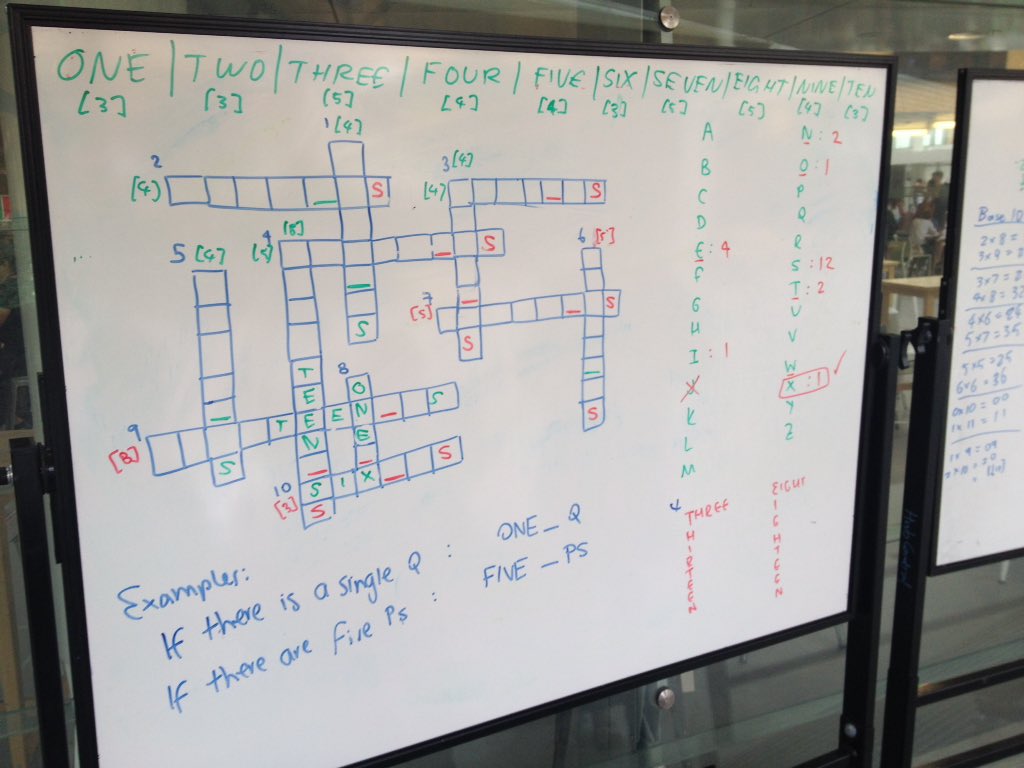 ONE | TWO | THREE | FOUR | FIVE | SIX | SEVEN | EIGHT | NINE | TEN
[3] [3] [5] [4] [4] [3] [5] [5] [4] [3]
1 [4]
2
[4] S
3 [4]
[4] S
4 [8]
S
5 [4]
6 [5]
7
[5] S
S
S
T
E
8
O
S
9
[8] T E E N S
S
N E
10
[3] S I X S
S
A
B
C
D
E : 4
F
G
H
I : 1
J
K
L
M
N : 2
O : 1
P
Q
R
S : 12
T : 2
U
V
W
X : 1
Y
Z
4 THREE
H
I
R
T
E
E
N
EIGHT
I
G
H
T
E
E
N
Examples:
If there is a single Q : ONE_Q
If there are five Ps : FIVE_PS
Base 10
2x8 =
3x9 =
3x7 = 2
4x8 = 32
4x6 = 24
5x7 = 35
5x5 = 25
6x6 = 36
0x10 = 00
1x11 = 11
1x9 = 09